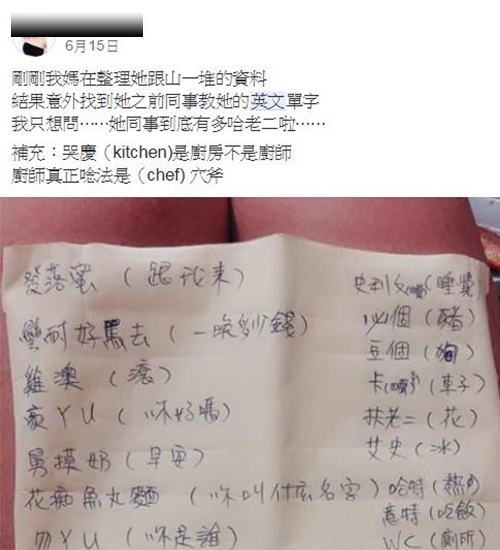 6月15日
剛剛我媽在整理她跟山一堆的資料
結果意外找到她之前同事教她的英文單字
我只想問……她同事到底有多哈老二啦……
補充：哭慶（kitchen)是廚房不是廚師
廚師真正唸法是（chef) 穴斧
發落蜜（跟我來）
蠻耐好馬去（一晚多少錢）
雞澳（滾）
豪ㄚU（你好嗎）
舅摸奶（早安）
花痴魚丸麵（你叫什麼名字）
勿ㄚU（你是誰）
(睡覺)
必個(豬)
豆個(狗)
(車子)
扶老二(花)
艾史(冰)
哈特(熱)
意特(吃飯)
WC(廁所)